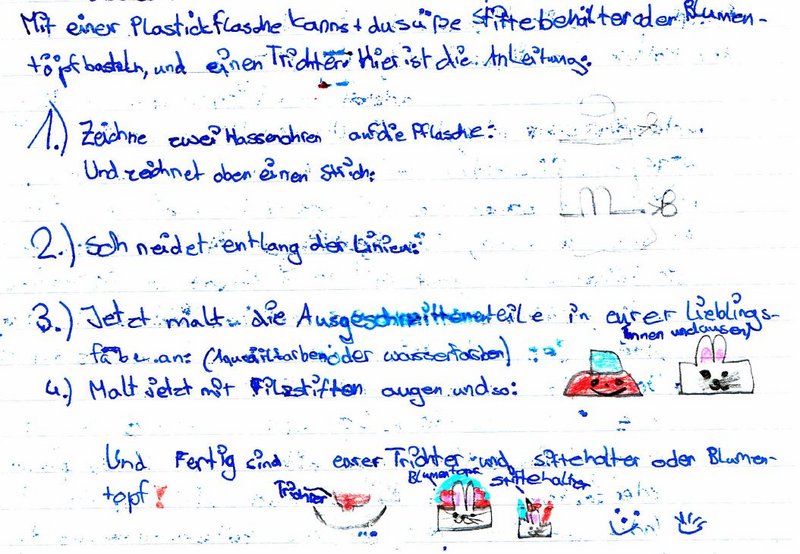 Mit einer Plastickflasche kannst du süße stiftebehälter oder Blumen-
töpf basteln, und einen Trichter. Hier ist die Anleitung:
1.) Zeichne zwei Hassenohren auf die Pflasche:
Und zeichnet oben einen Strich:
2.) Schneidet entlang der Linien:
3.) Jetzt malt die Ausgeschnittenenteile in eurer Lieblings-
färbe an: (Aquarillfarben oder wasserfarben)
Innen und ausen
4.) Malt jetzt mit Filzstiften augen und so:
Und Fertig sind eurer Trichter und stiftehalter oder Blumen-
topf!
Trichter
Blumentopf
stiftehalter